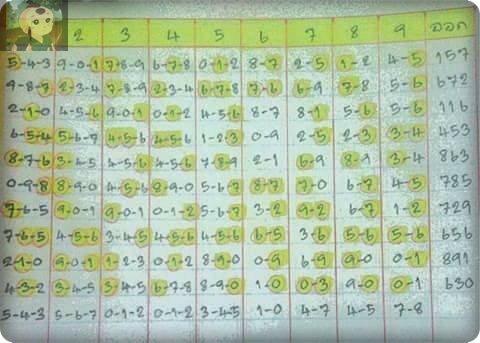 2 3 4 5 6 7 8 9 ออก
5-4-3 9-0-1 7-8-9 6-7-8 0-1-2 8-7 2-5 1-2 4-5 157
9-8-7 2-3-4 7-8-9 2-3-4 6-7-8 7-6 6-9 7-8 5-6 672
2-1-0 4-5-6 9-0-1 0-1-2 4-5-6 8-7 8-1 5-6 5-6 116
6-5-4 5-6-7 4-5-6 4-5-6 1-2-3 0-9 2-5 2-3 3-4 453
8-7-6 3-4-5 4-5-6 4-5-6 7-8-9 2-1 6-9 8-9 3-4 863
0-9-8 8-9-0 4-5-6 8-9-0 5-6-7 8-7 7-0 6-7 4-5 785
7-6-5 9-0-1 9-0-1 0-1-2 5-6-7 3-2 9-2 6-7 1-2 729
7-6-5 4-5-6 3-4-5 4-5-6 4-5-6 6-5 3-6 5-6 5-6 656
2-1-0 9-0-1 1-2-3 0-1-2 8-9-0 0-9 6-9 9-0 0-1 891
4-3-2 3-4-5 3-4-5 6-7-8 8-9-0 1-0 0-3 9-0 0-1 630
5-4-3 5-6-7 0-1-2 0-1-2 3-4-5 1-0 4-7 4-5 7-8